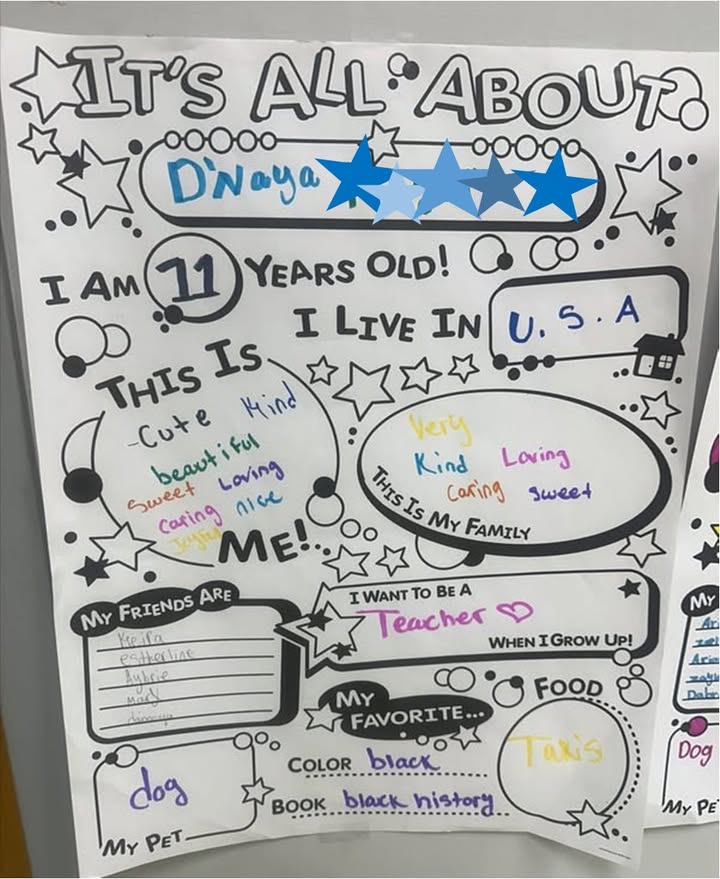 IT'S ALL ABOUT
D'Naya
I AM 11 YEARS OLD!
I LIVE IN U.S.A
THIS IS
-Cute Kind
beautiful
Sweet Loving
Caring nice
Joyful
ME!
Very
Kind Loving
Caring Sweet
THIS IS MY FAMILY
MY FRIENDS ARE
Keira
estherline
Aubrie
mary
I WANT TO BE A
Teacher
WHEN I GROW UP!
MY
FAVORITE...
FOOD
Takis
COLOR black
BOOK black history
dog
MY PET
MY
Dog
MY PE